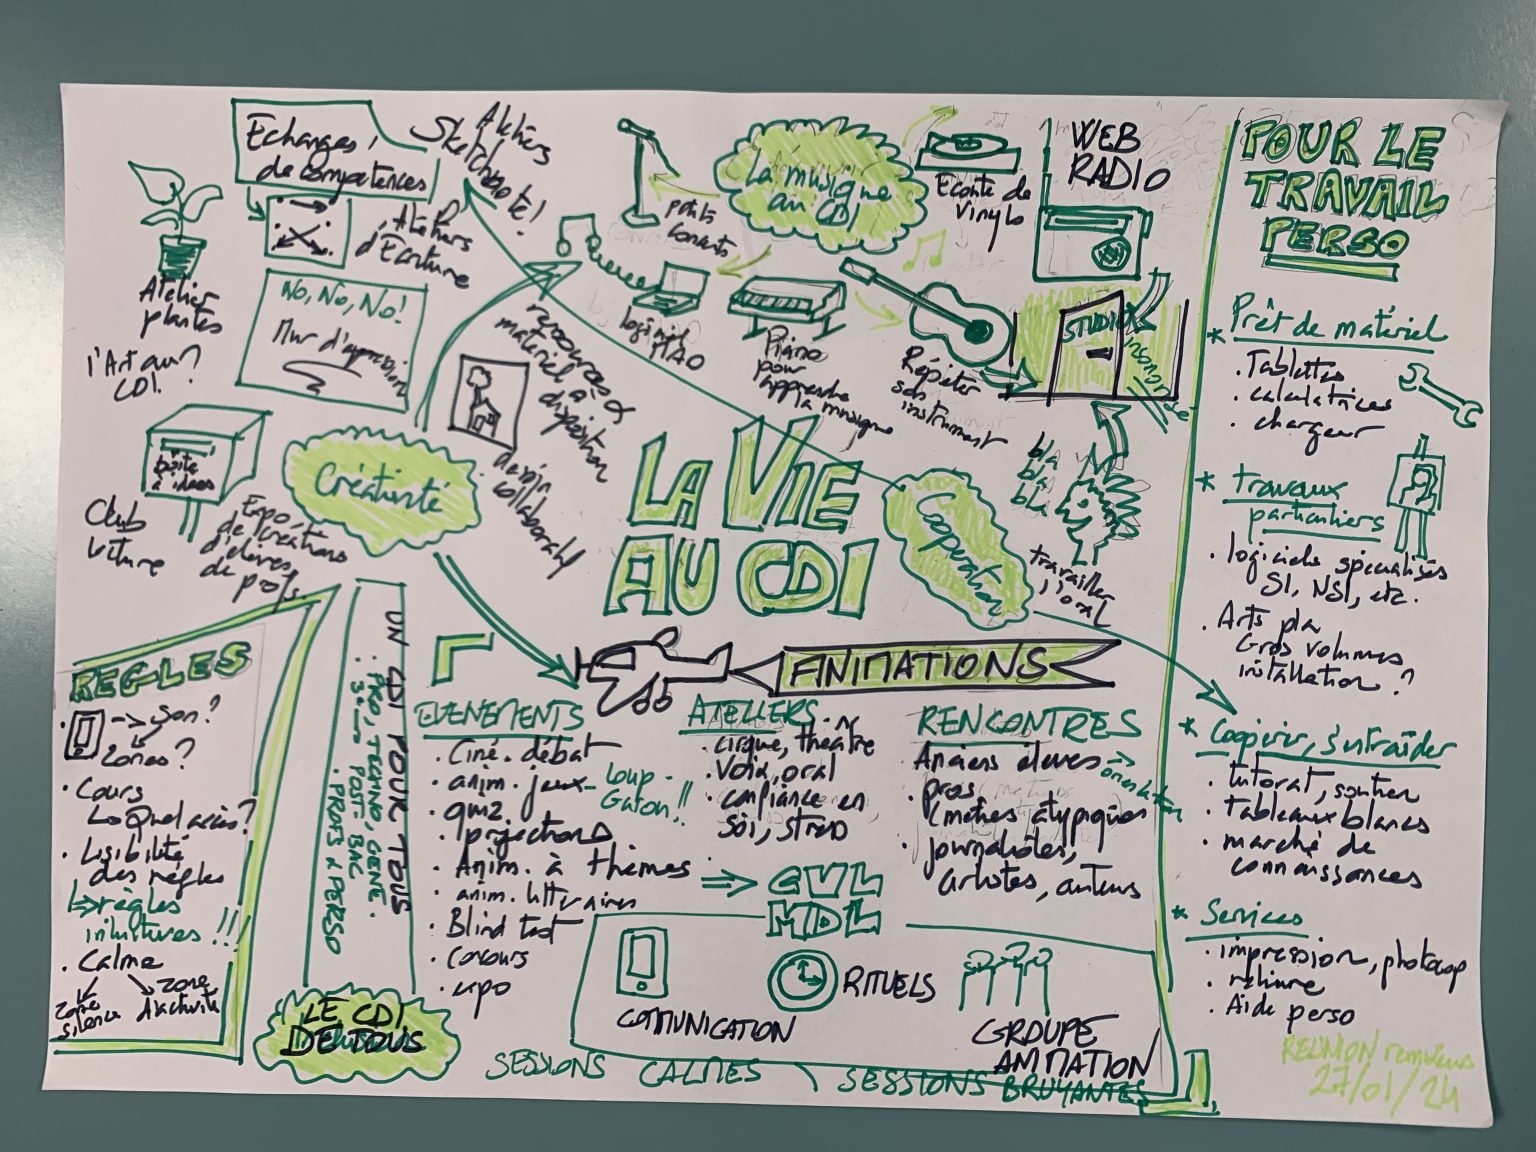 LA VIE
AU CDI
Echanges
de compétences
Ateliers
Sketchnote !
Ateliers
d'Ecriture
Atelier
plantes
l'Art au ?
CDI.
No, No, No!
Mur d'expression
boîte
à idées
Club
Expo
de créations
d'élèves,
de profs
Créativité
ressources &
matériel à
disposition
dessin
collaboratif
La musique
au CDI
petits
concerts
Ecoute de
Vinyls
WEB
RADIO
logiciel
MAO
Piano
pour
apprendre
la musique
Répéter
son
instrument
STUDIO
insonorisé
bla
bla
bla
travailler
l'oral
Coopération
ANIMATIONS
EVENEMENTS
. Ciné-débat
. anim. jeux - Loup-
Garou !!
. quiz
. projections
. Anim. à thèmes
. anim. littéraires
. Blind test
. Concours
. expo
ATELIERS
. cirque, théâtre
. Voix, oral
. confiance en
soi, stress
RENCONTRES
Anciens élèves → orientation
. pros
(métiers atypiques
. journalistes,
artistes, auteurs
⇒ CVL
MDL
COMMUNICATION
RITUELS
GROUPE
ANIMATION
SESSIONS CALMES, SESSIONS BRUYANTES
REGLES
→ Son ?
Zones ?
. Cours
↳ Quel accès ?
. Lisibilité
des règles
↳ règles
!!!
. Calme
zone
silence
zone
d'activité
UN CDI POUR TOUS
. PRO, TECHNO, GENE.
POST BAC
. PROFS & PERSO
LE CDI
DE TOUS
POUR LE
TRAVAIL
PERSO
* Prêt de matériel
. Tablettes
. calculatrices
. chargeur
* travaux
particuliers
. logiciels spécialisés
SI, NSI, etc.
. Arts pla
Gros volumes
installation ?
* Coopérer, s'entraider
. tutorat, soutien
. tableaux blancs
. marché de
connaissances
* Services
. impression, photocop
. reliure
. Aide perso
REUNION
27/01/24